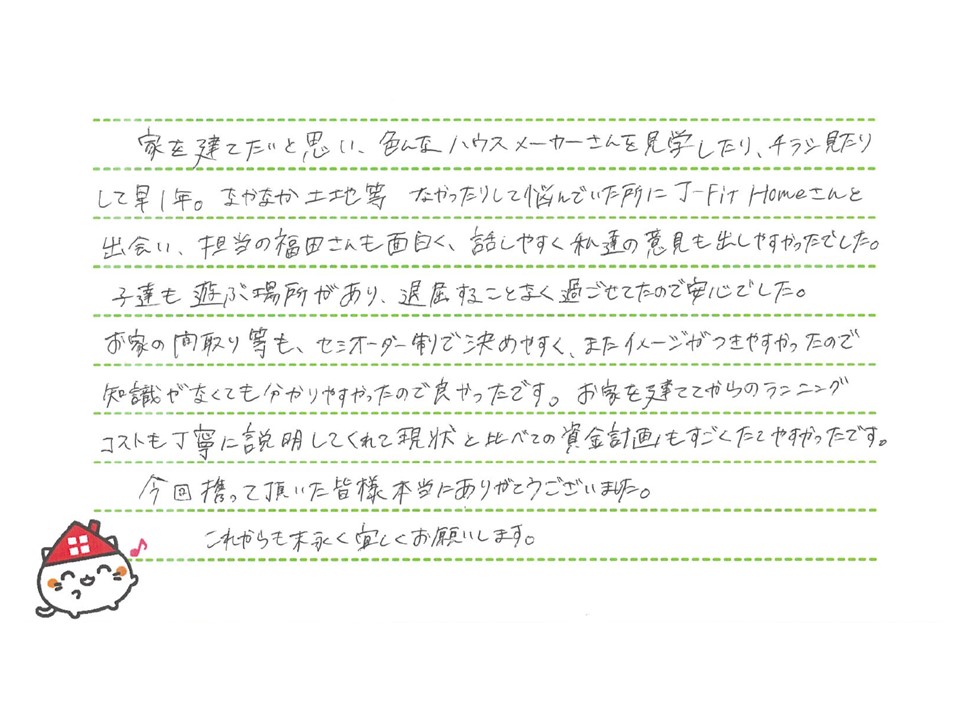 家を建てたいと思い、色んなハウスメーカーさんを見学したり、チラシ見たり
して早1年。なかなか土地等 なかったりして悩んでいた所にJ-Fit Homeさんと
出会い、担当の福田さんも面白く、話しやすく私達の意見も出しやすかったでした。
子達も遊ぶ場所があり、退屈することなく過ごせてたので安心でした。
お家の間取り等も、セミオーダー制で決めやすく、またイメージがつきやすかったので
知識がなくても分かりやすかったので良かったです。お家を建ててからのランニング
コストも丁寧に説明してくれて現状と比べての資金計画もすごくたてやすかったです。
今回携って頂いた皆様本当にありがとうございました。
これからも末永く宜しくお願いします。